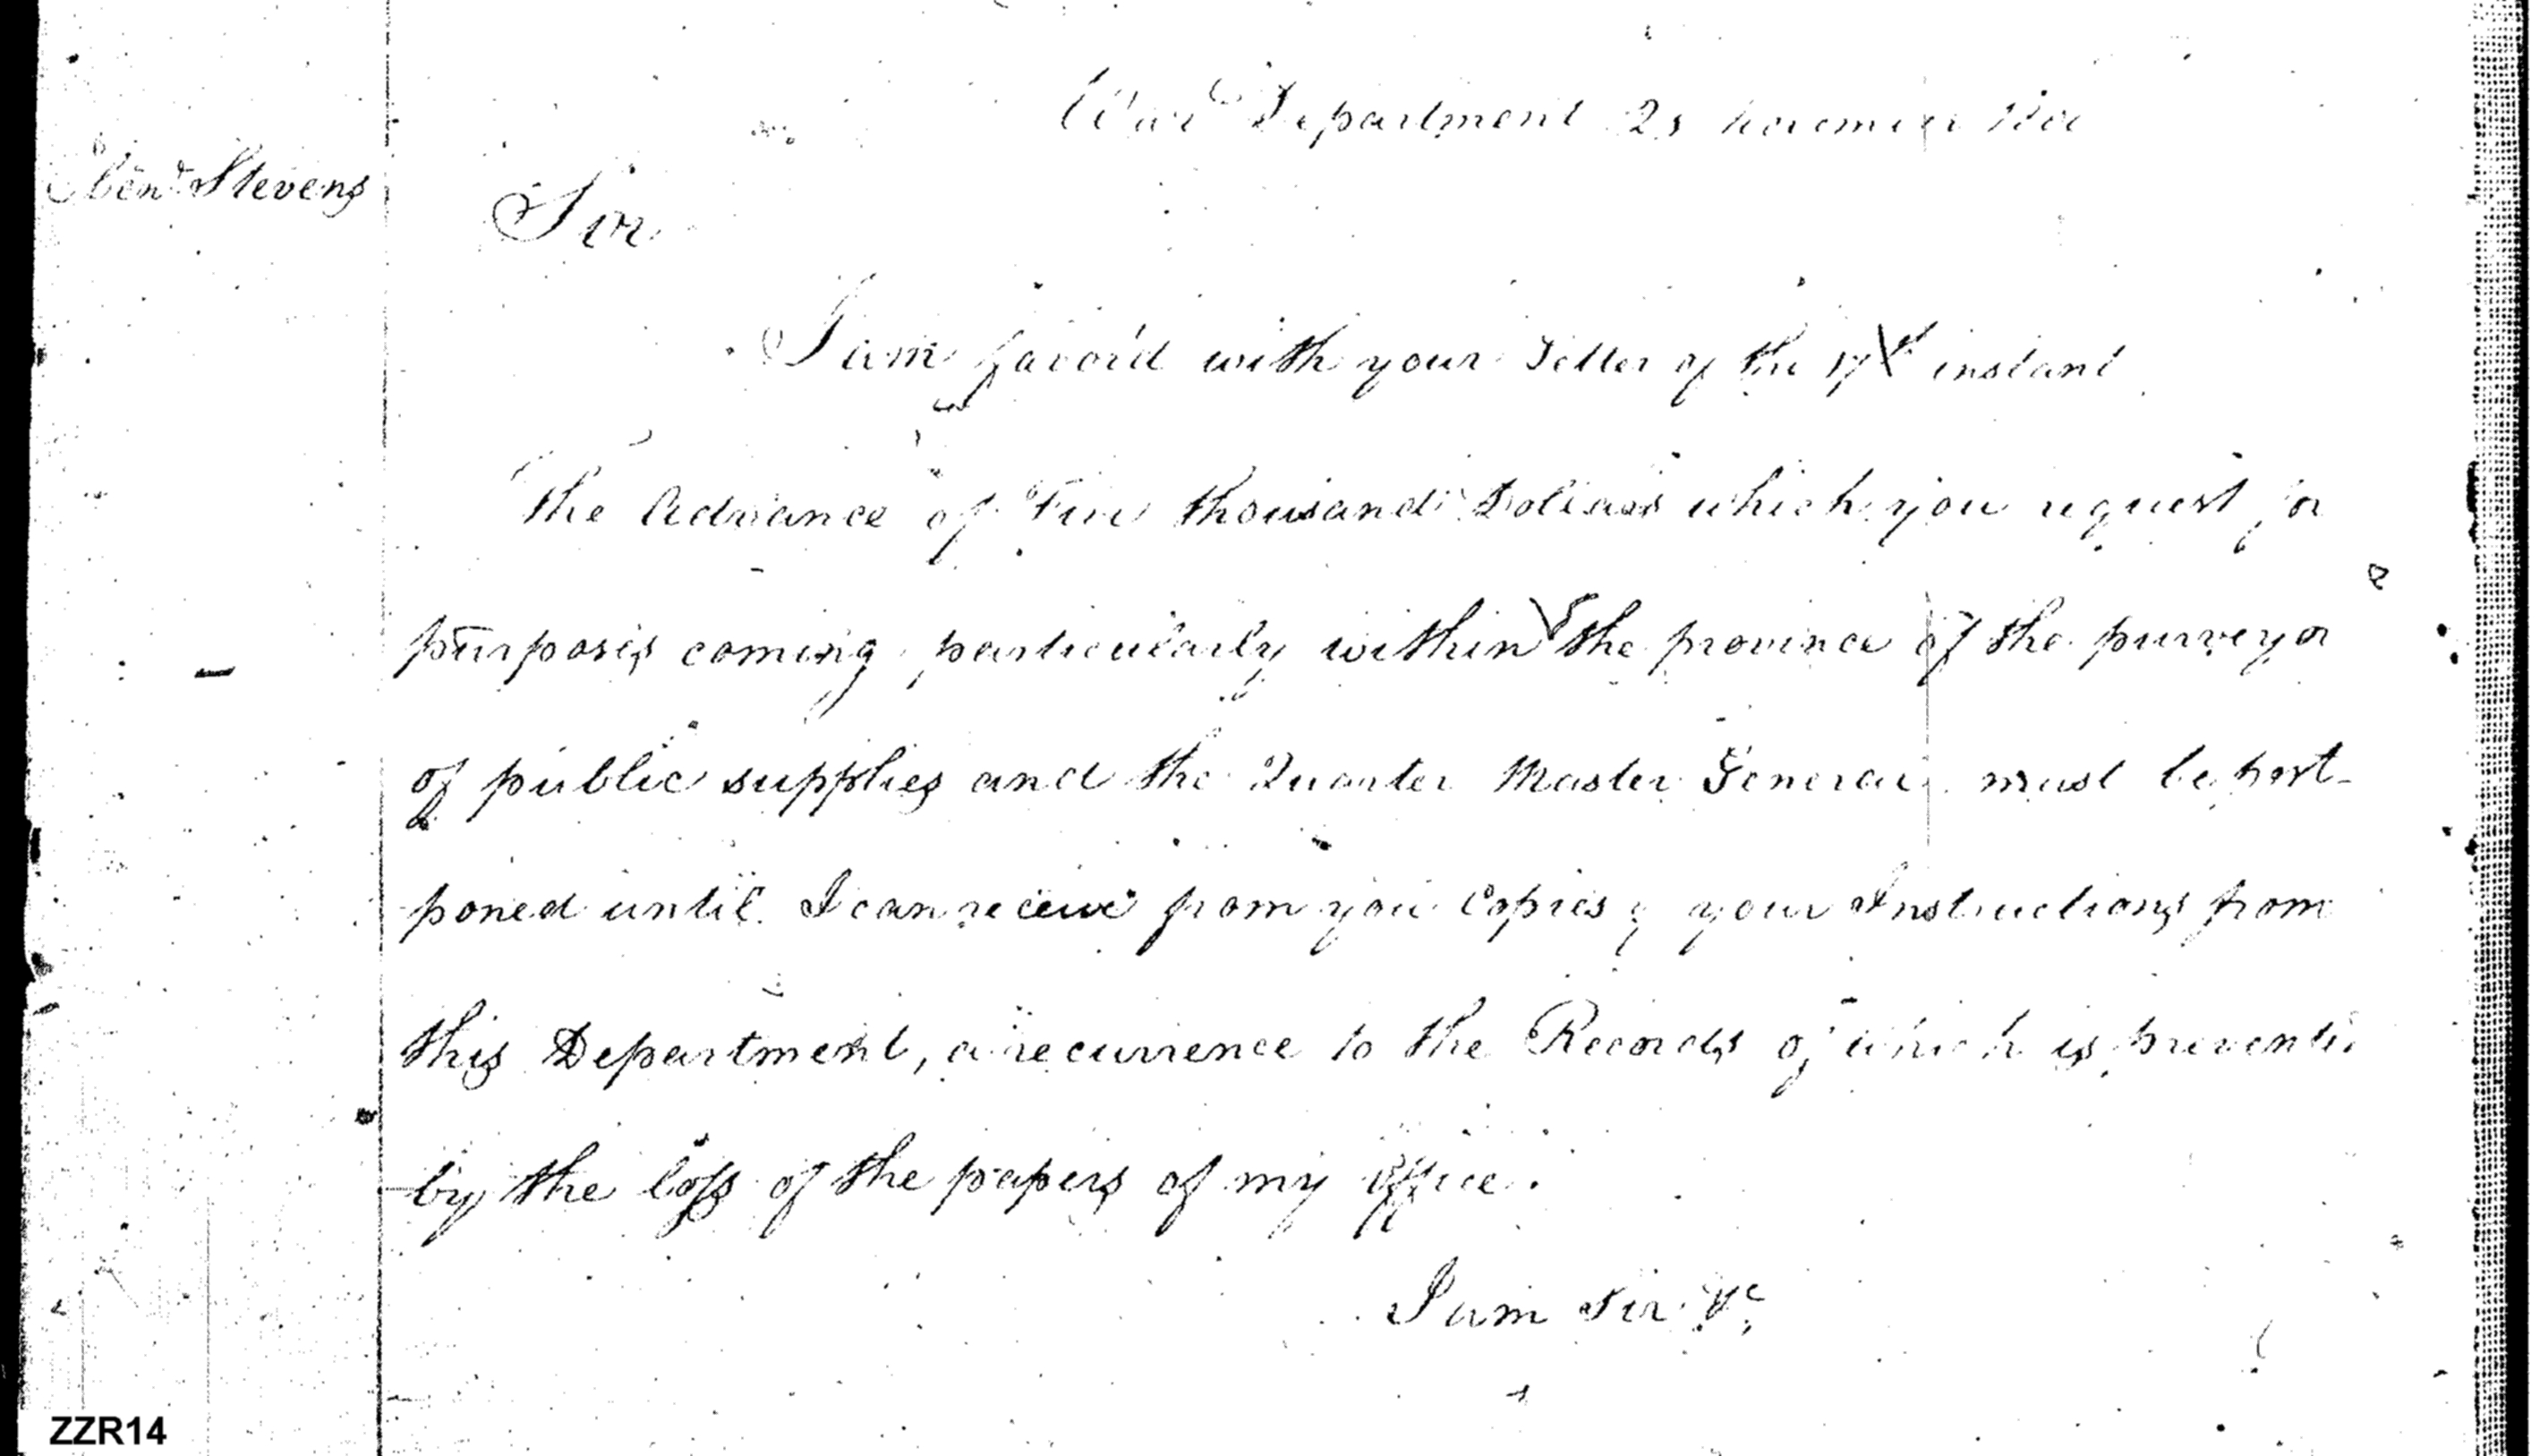 War Department 21 November 1800
Eben<sup>r</sup> Stevens
Sir
I am favor'd with your Letter of the 17<sup>th</sup> instant
The Advance of Five thousand Dollars which you request for
purposes coming particularly within the province of the purveyor
of public supplies and the Quarter Master General must be post-
poned until I can receive from you Copies of your Instructions from
this Department, a recurrence to the Records of which is prevented
by the loss of the papers of my Office.
I am Sir &c
ZZR14